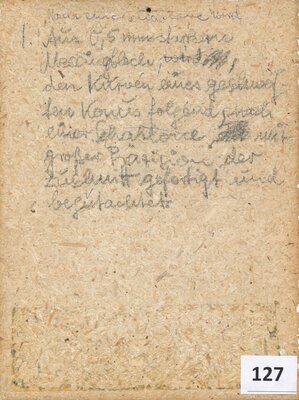 1. Aus 0,5 mm starkem
Messingblech, wird,
den Kurven eines geschweif-
ten Konus folgend, nach
einer Schablone mit
großer Präzision der
Zuschnitt gefertigt und
begutachtet
127